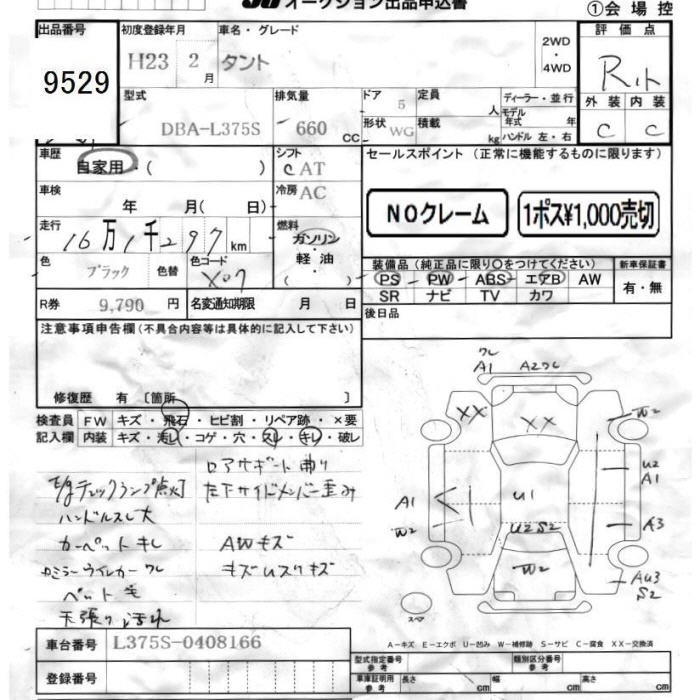 オークション出品申込書
①会場控
出品番号
9529
初度登録年月
H23 2月
車名・グレード
タント
2WD
・
4WD
評価点
R
外装 内装
C C
型式
DBA-L375S
排気量
660 CC
ドア 5
形状 WG
定員 人
積載 kg
ディーラー・並行
モデル年式 年
ハンドル 左・右
車歴
自家用・( )
シフト
C AT
車検
年 月( 日)
冷房
AC
走行
16万1千297km
燃料
ガソリン
・
軽油
色
ブラック
色替
色コード
X07
R券
9,790 円
名変通知期限 月 日
セールスポイント (正常に機能するものに限ります)
NOクレーム
1ポス¥1,000売切
装備品(純正品に限り○をつけてください)
PS PW ABS エアB AW
SR ナビ TV カワ
新車保証書
有・無
後日品
注意事項申告欄(不具合内容等は具体的に記入して下さい)
修復歴 有 〔箇所 〕
検査員 FW キズ・飛石・ヒビ割・リペア跡・×要
記入欄 内装 キズ・汚し・コゲ・穴・スレ・キレ・破レ
ロアサポート曲り
E/gチェックランプ点灯
左下サイドメンバー歪み
ハンドルスレ大
カーペットキレ
AWキズ
ミラーウインカーワレ
キズUスリキズ
ペット毛
天張り汚れ
ワレ
A1
A2ワレ
XX
XX
W2
U2
A1
A1
W2
U1
U2S2
A3
W2
AU3
S2
スペア
A-キズ E-エクボ U-凹み W-補修跡 S-サビ C-腐食 XX-交換済
車台番号
L375S-0408166
登録番号
型式指定番号 参考
類別区分番号 参考
車庫証明用 参考
長さ cm
幅 cm
高さ cm